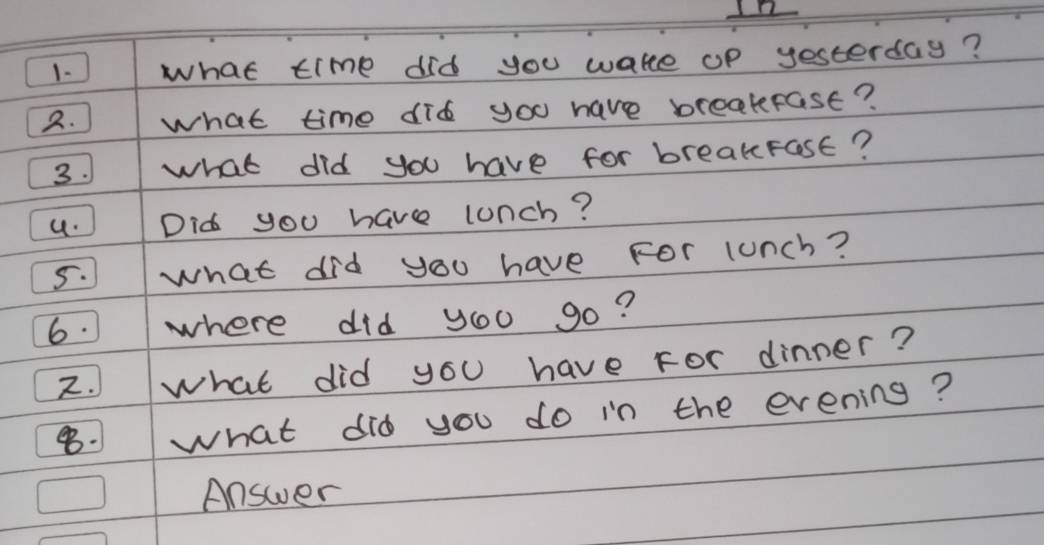 1. What time did you wake up yesterday?
2. What time did you have breakfast?
3. What did you have for breakfast?
4. Did you have lunch?
5. What did you have for lunch?
6. where did you go?
7. What did you have for dinner?
8. What did you do in the evening?
Answer